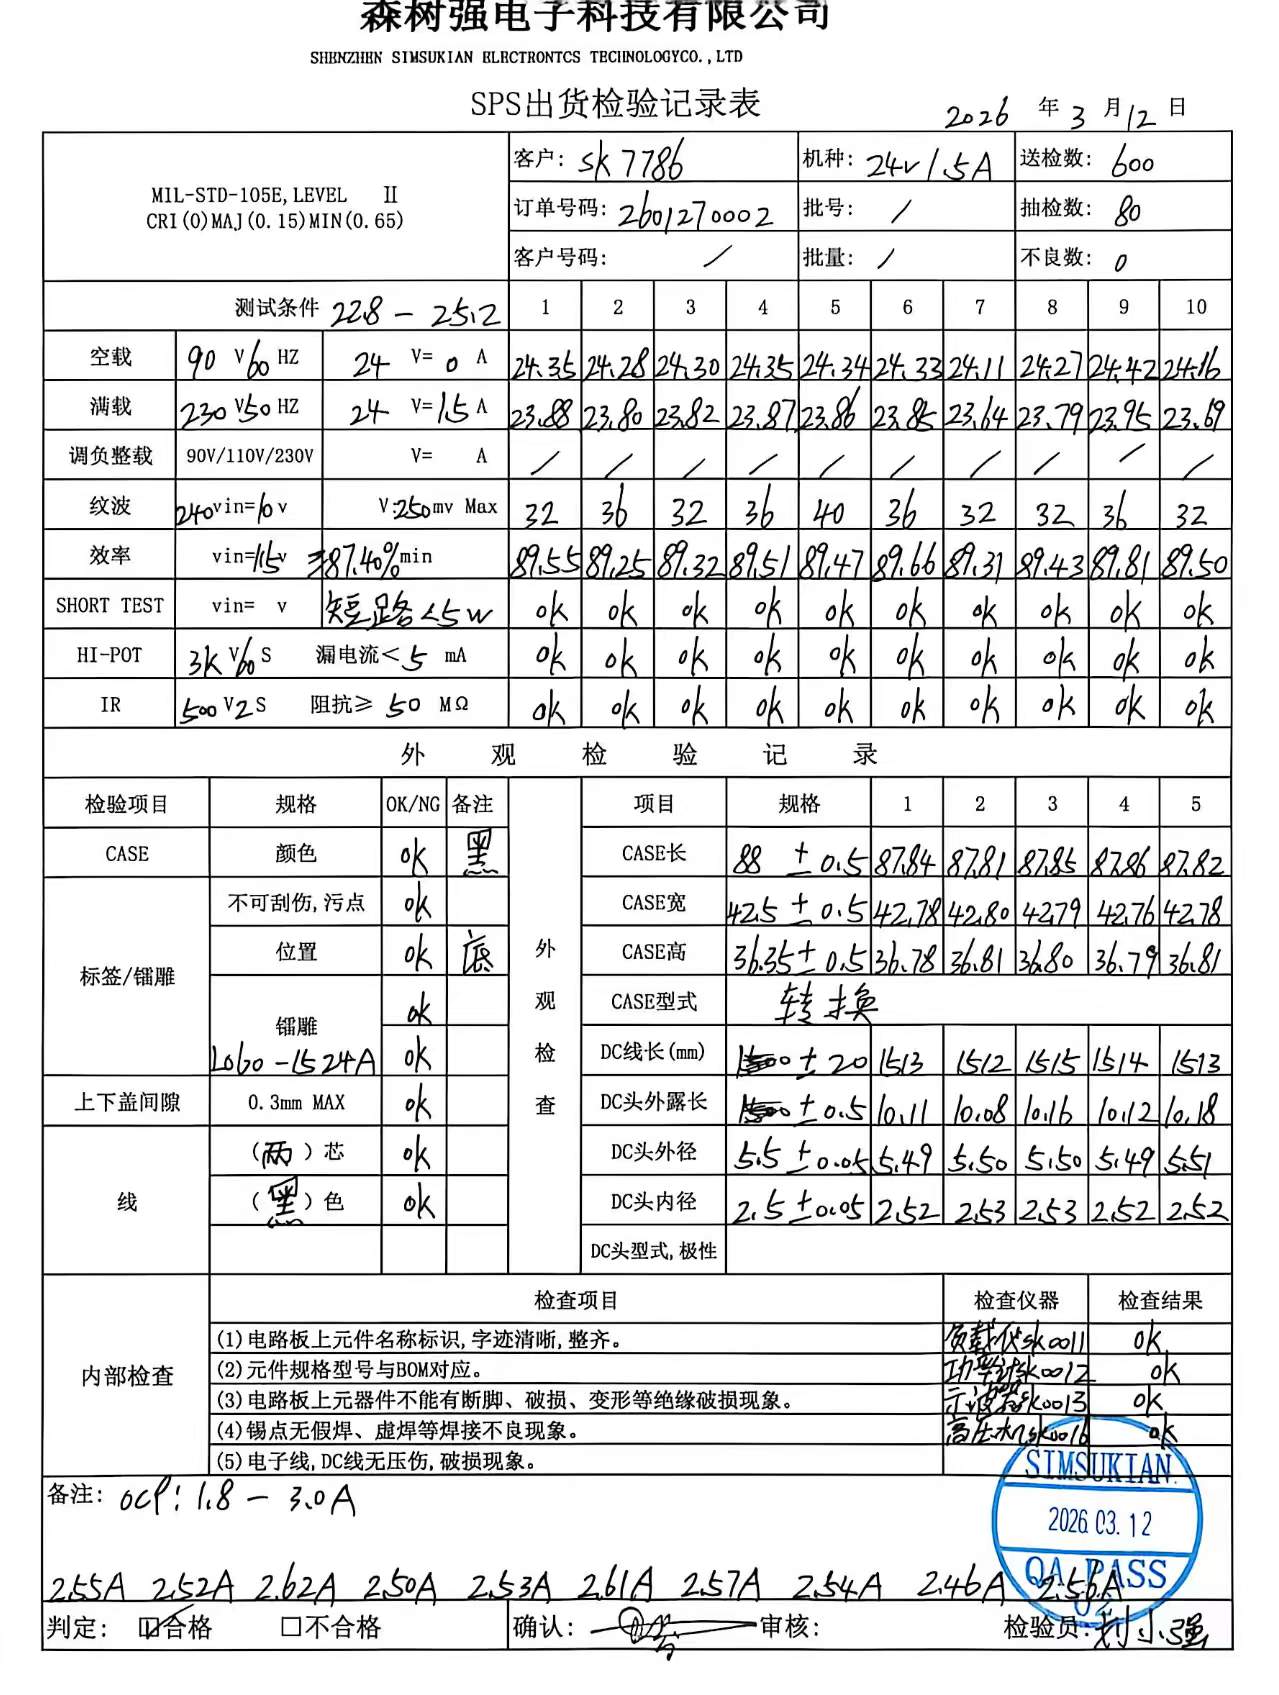 森树强电子科技有限公司
SHENZHEN SIMSUKIAN ELECTRONTCS TECHNOLOGYCO.,LTD
SPS出货检验记录表
2026 年 3 月 12 日
MIL-STD-105E,LEVEL II
CRI(0)MAJ(0.15)MIN(0.65)
客户: SK7786 机种: 24V1.5A 送检数: 600
订单号码: 2601270002 批号: / 抽检数: 80
客户号码: / 批量: / 不良数: 0
测试条件 22.8 - 25.2 1 2 3 4 5 6 7 8 9 10
空载 90 V 60 HZ 24 V= 0 A 24.35 24.28 24.30 24.35 24.34 24.33 24.11 24.27 24.42 24.16
满载 230 V 50 HZ 24 V= 1.5 A 23.88 23.80 23.82 23.87 23.86 23.85 23.64 23.79 23.95 23.69
调负整载 90V/110V/230V V= A / / / / / / / / / /
纹波 240vin= v V:250mv Max 32 36 32 36 40 36 32 32 36 32
效率 vin=115v ≥87.40%min 89.55 89.25 89.32 89.51 89.47 89.66 89.31 89.43 89.81 89.50
SHORT TEST vin= v 短路<5W ok ok ok ok ok ok ok ok ok ok
HI-POT 3K V 60 S 漏电流< 5 mA ok ok ok ok ok ok ok ok ok ok
IR 500 V 2 S 阻抗≥ 50 MΩ ok ok ok ok ok ok ok ok ok ok
外 观 检 验 记 录
检验项目 规格 OK/NG 备注 项目 规格 1 2 3 4 5
CASE 颜色 ok 黑 CASE长 88 ± 0.5 87.84 87.81 87.85 87.86 87.82
标签/镭雕 不可刮伤,污点 ok CASE宽 42.5 ± 0.5 42.78 42.80 42.79 42.76 42.78
位置 ok 底 外观检查 CASE高 36.35 ± 0.5 36.78 36.81 36.80 36.79 36.81
镭雕 ok CASE型式 转换
LOGO-1524A ok DC线长(mm) ± 20 1513 1512 1515 1514 1513
上下盖间隙 0.3mm MAX ok DC头外露长 ± 0.5 10.11 10.08 10.16 10.12 10.18
线 (两)芯 ok DC头外径 5.5 ± 0.05 5.49 5.50 5.50 5.49 5.51
(黑)色 ok DC头内径 2.5 ± 0.05 2.52 2.53 2.53 2.52 2.52
DC头型式,极性
内部检查 检查项目 检查仪器 检查结果
(1)电路板上元件名称标识,字迹清晰,整齐。 负载仪SK0011 OK
(2)元件规格型号与BOM对应。 功率计SK0012 OK
(3)电路板上元器件不能有断脚、破损、变形等绝缘破损现象。 示波器SK0013 OK
(4)锡点无假焊、虚焊等焊接不良现象。 高压机SK0016 OK
(5)电子线,DC线无压伤,破损现象。
SIMSUKIAN
2026.03.12
QA PASS
02
备注: OCP: 1.8 - 3.0A
2.55A 2.52A 2.62A 2.50A 2.53A 2.61A 2.57A 2.54A 2.46A 2.56A
判定: ☑合格 □不合格 确认: 审核: 检验员: 刘小强